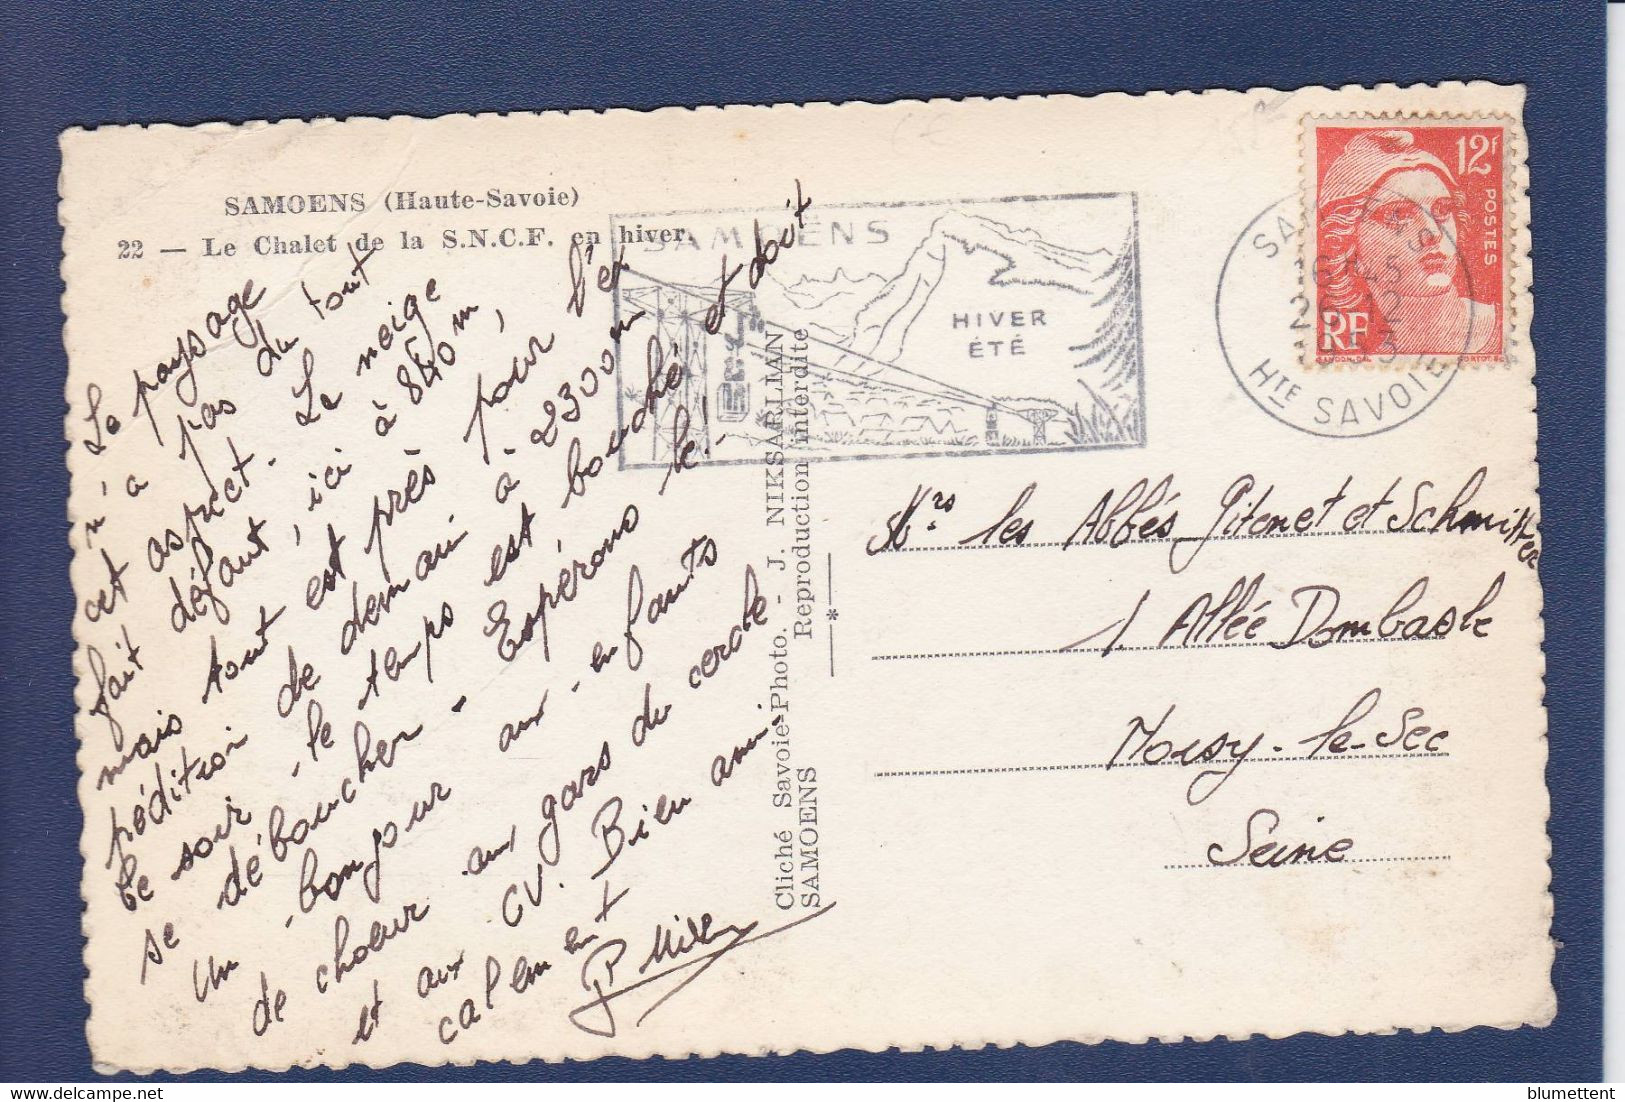 SAMOENS (Haute-Savoie)
22 — Le Chalet de la S.N.C.F. en hiver
Le paysage
n'a pas du tout
cet aspect. La neige
fait défaut, ici à 840 m,
mais tout est près pour l'ex
pédition de demain à 2300 m
Ce soir - le temps est bouché et doit
se déboucher - Espérons-le!-
Un bonjour aux enfants
de choeur aux gars du cercle
et aux CV. Bien ami-
calement
Cliché Savoie-Photo. - J. NIKSARLIAN
SAMOENS Reproduction interdite
SAMOËNS
HIVER
ÉTÉ
12f
POSTES
RF
HTE SAVOIE
Mrs les Abbés Pitonet et Schmitter
1. Allée Dombasle
Noisy-le-Sec
Seine
blumettent